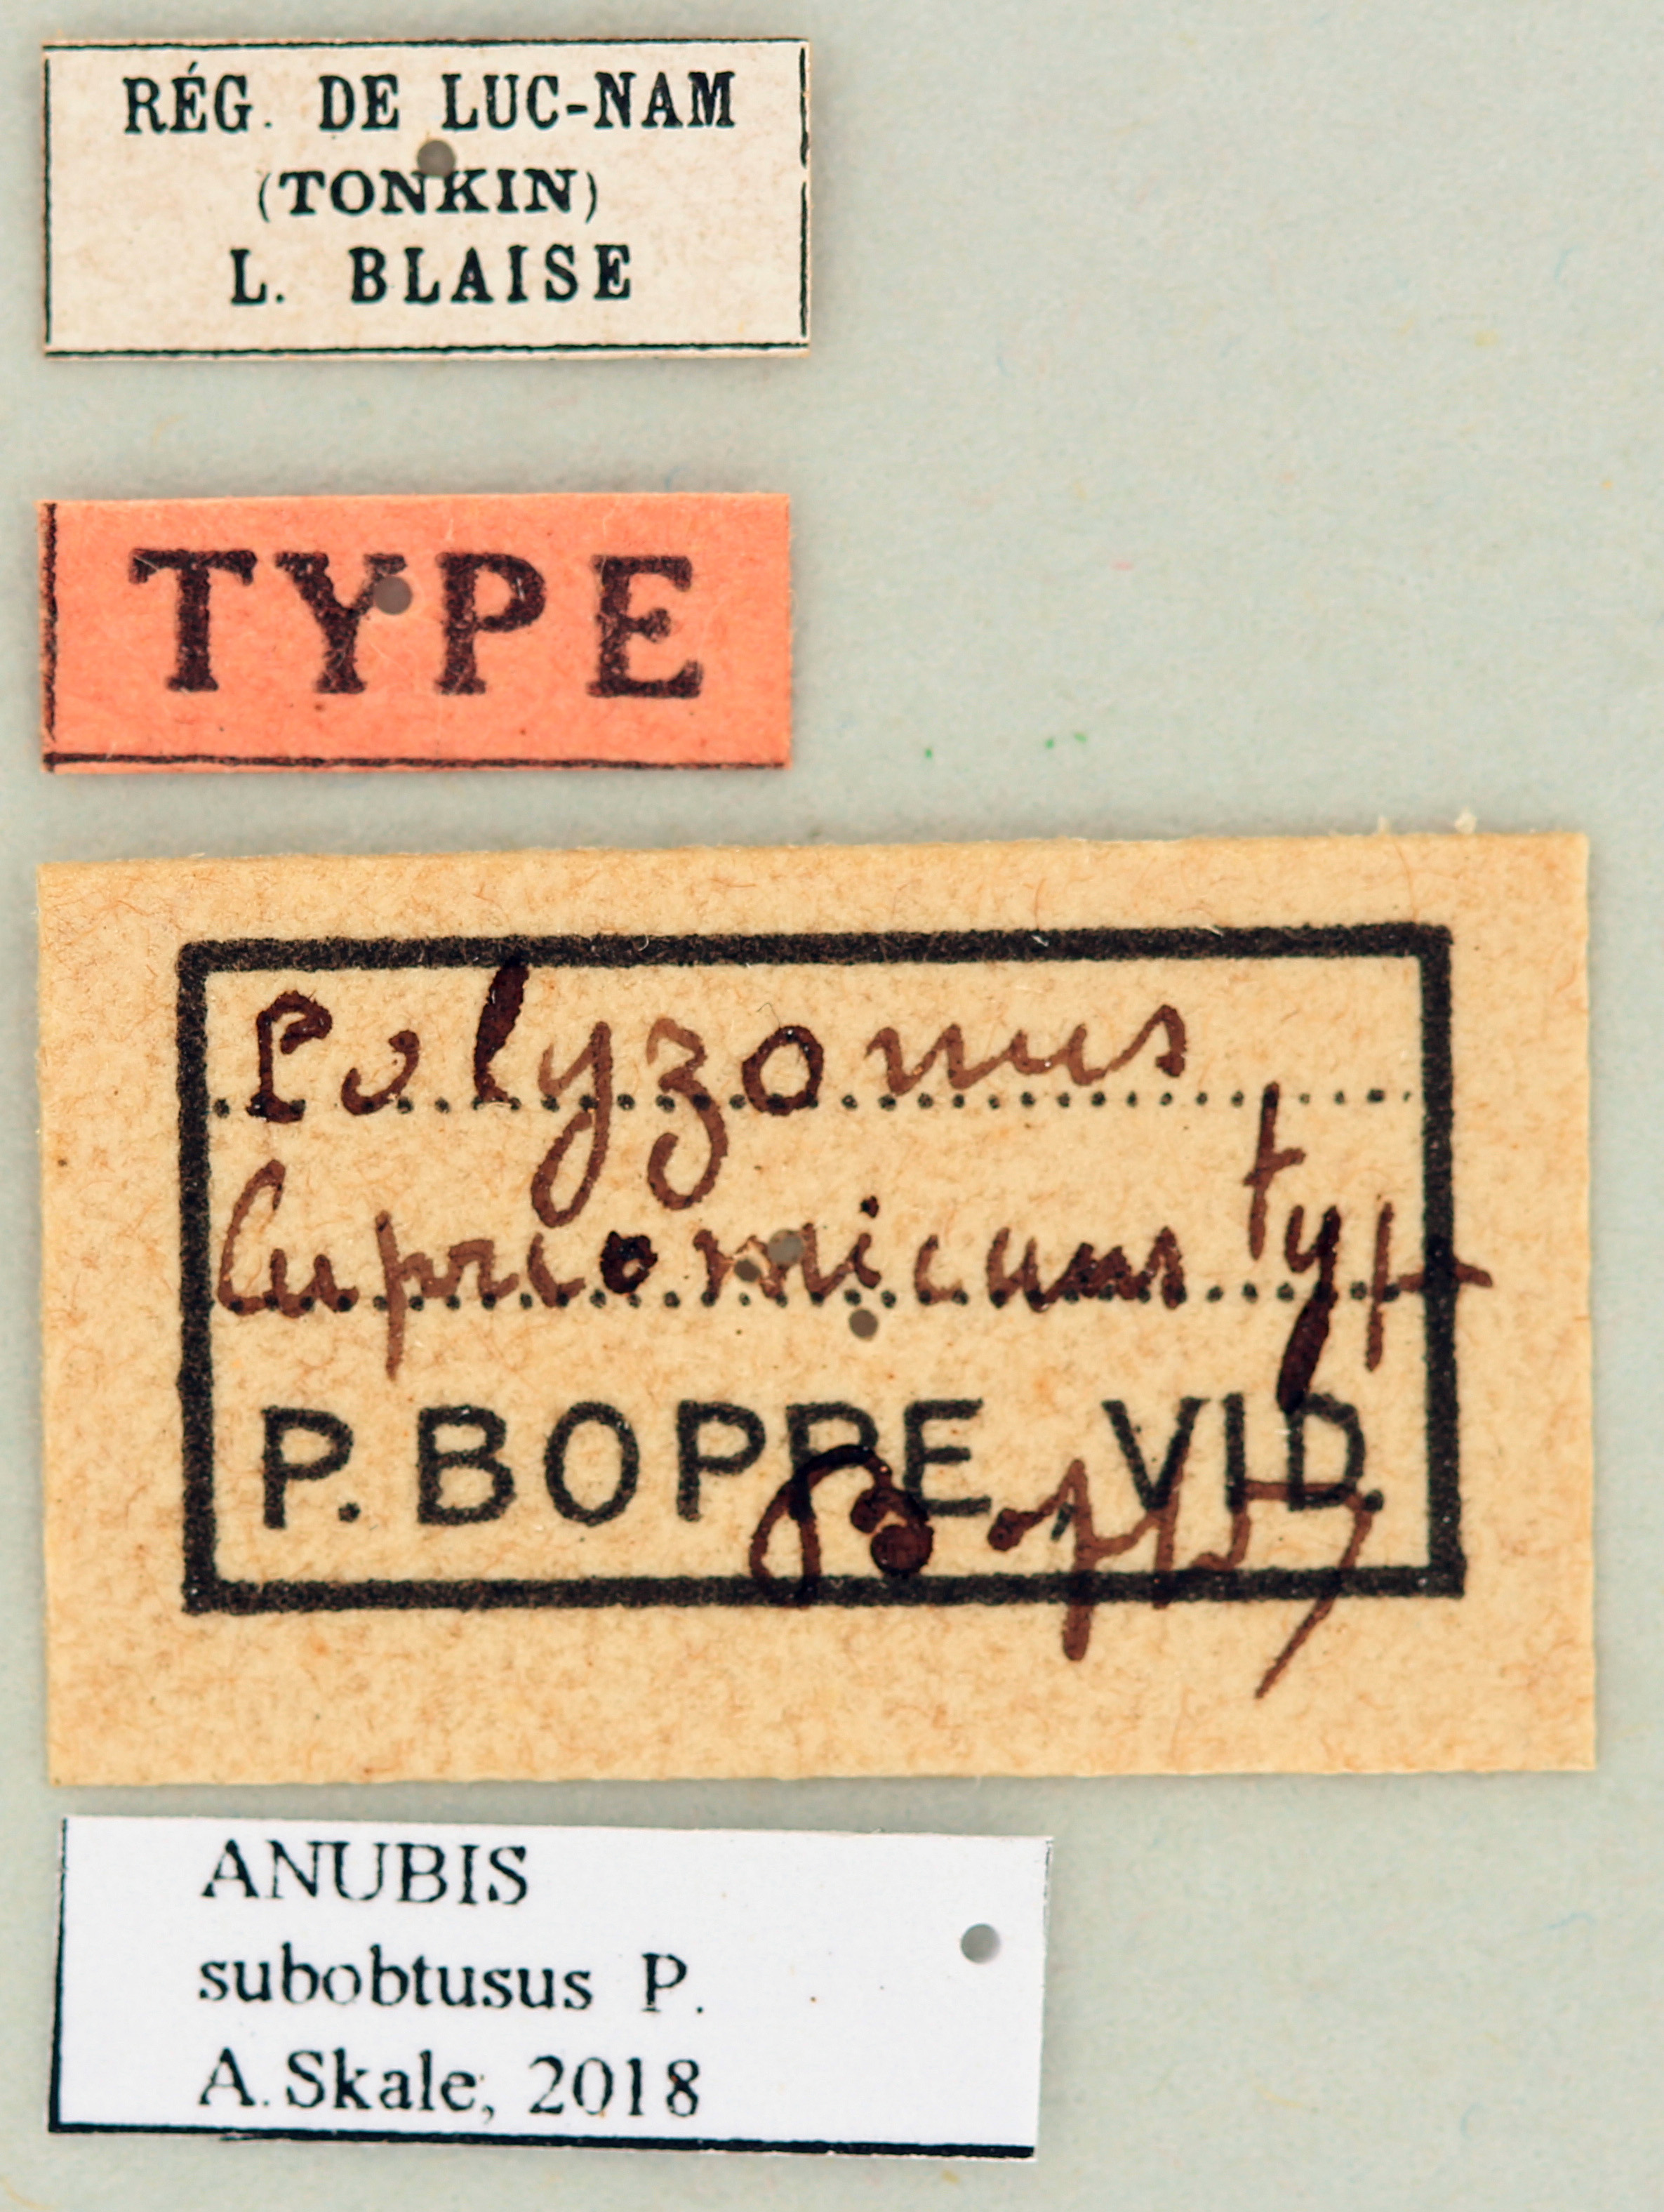 RÉG. DE LUC-NAM
(TONKIN)
L. BLAISE
TYPE
Polyzonus
cupreomicans typ
P. BOPPE, VID.
Boppe
ANUBIS
subobtusus P.
A. Skale, 2018